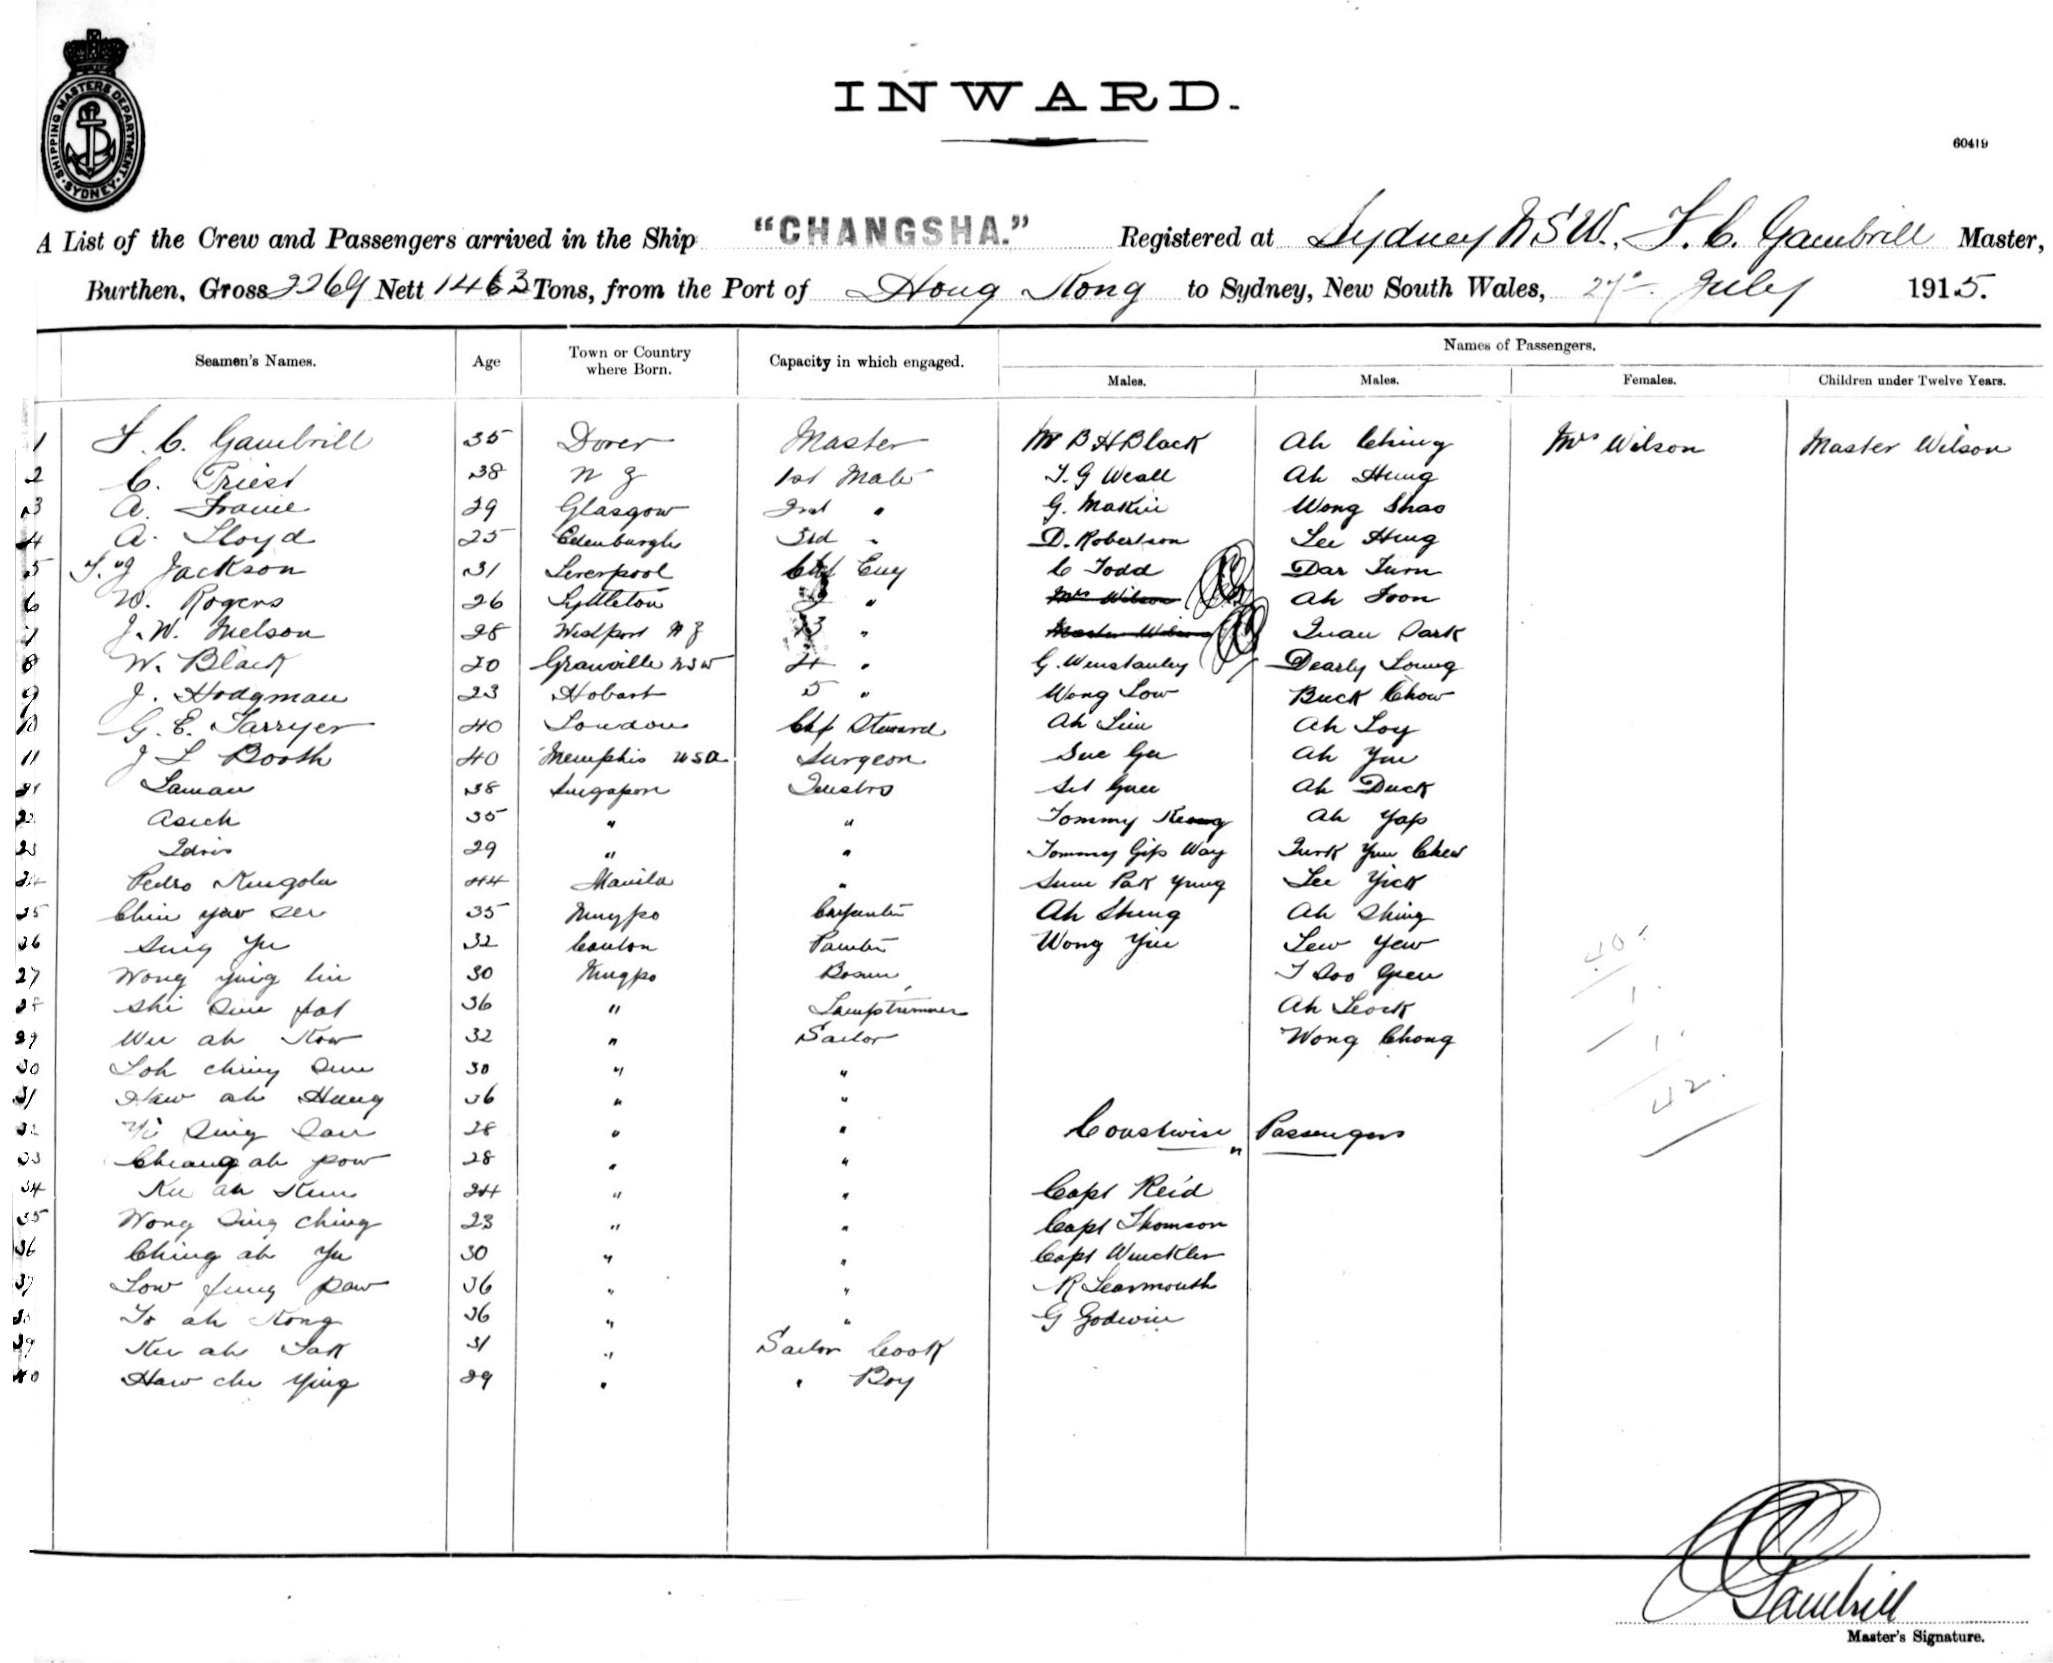 SHIPPING MASTERS DEPARTMENT. SYDNEY.
INWARD.
60419
A List of the Crew and Passengers arrived in the Ship "CHANGSHA." Registered at Sydney NSW., F. C. Gambrill Master,
Burthen, Gross 2269 Nett 1463 Tons, from the Port of Hong Kong to Sydney, New South Wales, 27 July 1915.
Seamen's Names. Age Town or Country where Born. Capacity in which engaged. Names of Passengers.
Males. Males. Females. Children under Twelve Years.
1 F. C. Gambrill 35 Dover Master Mr B H Black Ah Ching Mrs Wilson Master Wilson
2 C. Priest 38 N Z 1st Mate T. G Weall Ah Hung
3 A. 29 Glasgow 2nd " G. Makin Wong Shao
4 A. Lloyd 25 Edenburgh 3rd " D. Robertson Lee Hing
5 T. G Jackson 31 Liverpool Chf Eng C Todd Dar Turn
6 W. Rogers 26 Lyttleton 2 " Mrs Wilson Ah Foon
7 J. W. Nelson 28 Westport N Z 3 " Master Wilson Quan Sark
8 W. Black 20 Granville NSW 4 " G. Winstanley Dearly Loung
9 J. Hodgman 23 Hobart 5 " Wong Low Buck Chow
10 G. E. Tarryer 40 London Chf Steward Ah Lim Ah Loy
11 J L Booth 40 Memphis USA Surgeon Sue Gee Ah You
21 Laman 38 Singapore Ah Duck
22 Asich 35 " " Tommy Keong Ah Yap
23 Idris 29 " " Tommy Gip Way Yun Chew
24 Pedro 44 Manila " Sum Pak Yung Lee Yick
25 Chin yaw ser 35 Ningpo Carpenter Ah Shung Ah Shing
26 Sing Yu 32 Canton Painter Wong Yin Lew Yew
27 Wong ying lin 30 Ningpo Bosun I Soo Gren
28 Shi Sin fat 36 " Lamptrimmer Ah Leock
29 Wu ah Kow 32 " Sailor Wong Chong
30 Loh ching Sun 30 " "
31 Haw ah Hung 36 " "
32 Yi Sing San 28 " " Coastwise Passengers
33 Cheang ah pow 28 " "
34 Ku ah Kum 24 " " Capt Reid
35 Wong Sing Ching 23 " " Capt Thomson
36 Ching ah Yu 30 " " Capt Winckler
37 Low fung paw 36 " " R Learmouth
38 Jo ah Kong 36 " " G Godwin
39 Ku ah Tak 31 " Sailor Cook
40 Haw chu Ying 29 " " Boy
40
1
1
42
Gambrill
Master's Signature.